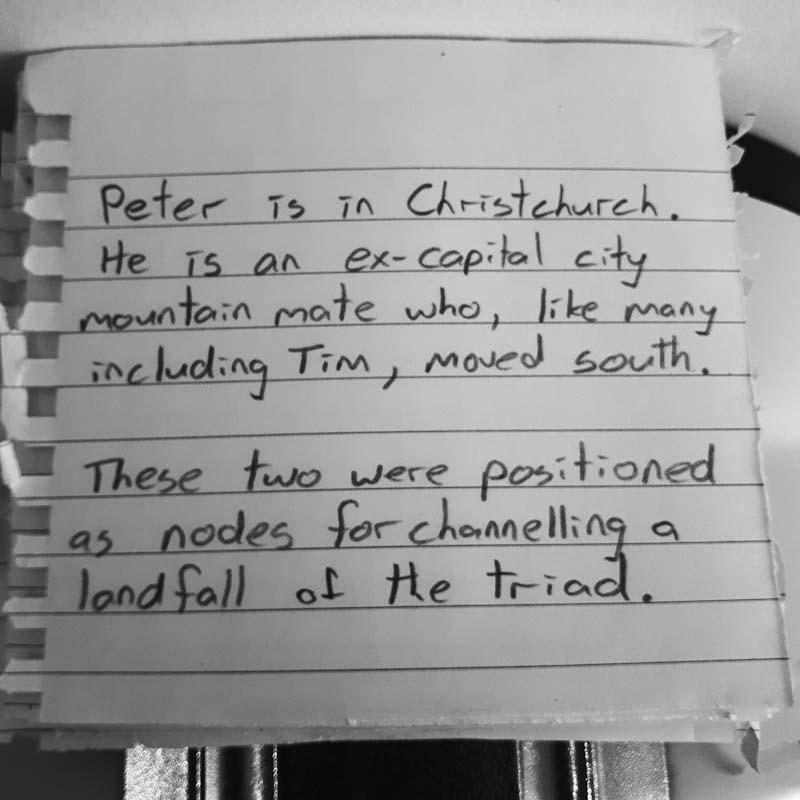 Peter is in Christchurch.
He is an ex-capital city
mountain mate who, like many
including Tim, moved south.
These two were positioned
as nodes for channelling a
landfall of the triad.